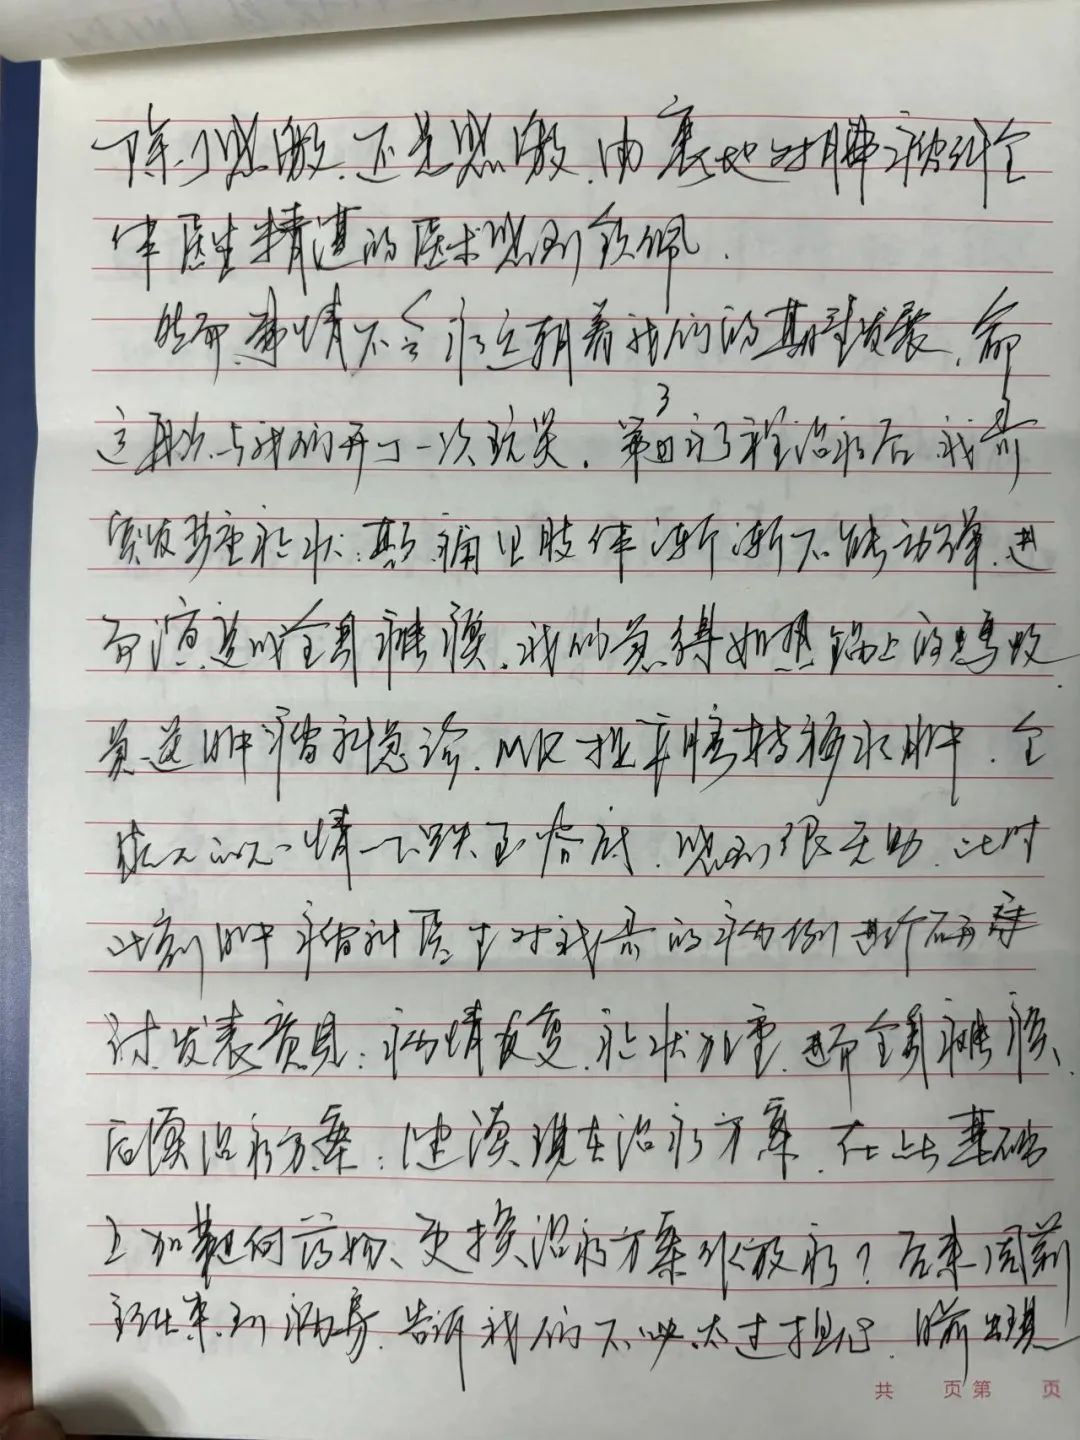 除了感激,还是感激,由衷地对肿瘤科全
体医生精湛的医术感到钦佩.
然而,事情不会永远朝着我们的期望发展,命
运再次与我们开了一次玩笑.第 疗程治疗后,我爸
突发 症状:其 侧肢体渐渐不能动弹,进
而演变成全身瘫痪,我们急得如热锅上的蚂蚁,
急送肿瘤科急诊,MR提示 转移 ,全
家人的心情一下跌至谷底,感到很无助,此时
此刻肿瘤科医生对我爸的病例进行
讨,发表意见:病情反复,症状加重,进而全身瘫痪、
后续治疗方案:建议现在治疗方案,在此基础
上加靶向药物、更换治疗方案 放疗?后来周莉
主任来到病房,告诉我们不必太过担心,目前出现
共 页 第 页